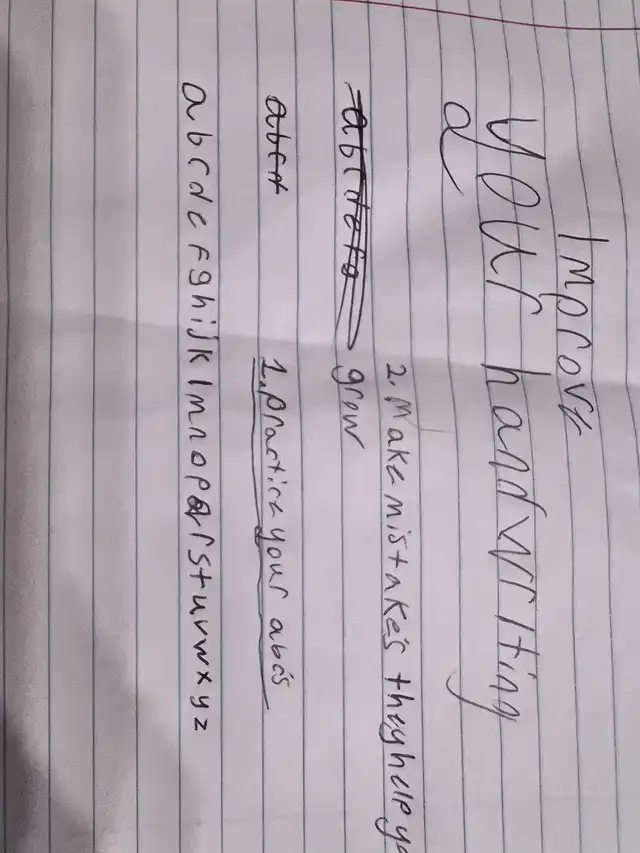 Improve
your handwriting
2. Make mistakes they help yo
grow
1. practice your abc's
abcdefghijklmnopqrstuvwxyz